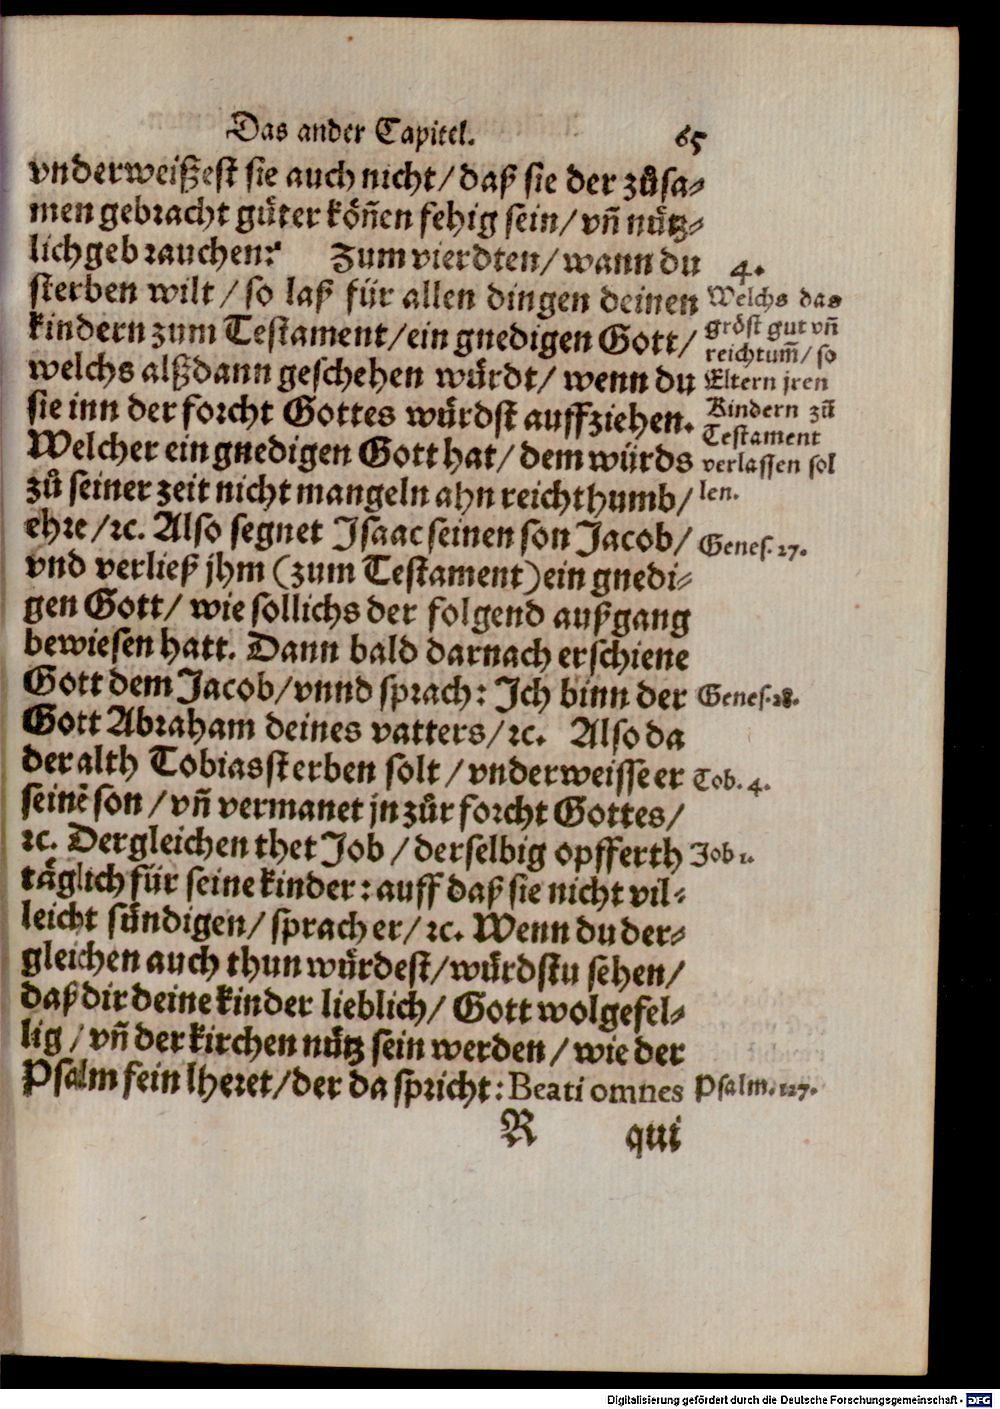 Das ander Capitel. 65
vnderweißest sie auch nicht/ daß sie der zůsa⸗
men gebracht gůter kön̄en fehig sein/ vn̄ nůtz⸗
lich gebrauchen: Zum vierdten/ wann du
4.
sterben wilt/ so laß für allen dingen deinen
kindern zum Testament/ ein gnedigen Gott/
welchs alßdann geschehen würdt/ wenn du
sie inn der forcht Gottes würdst auffziehen.
Welcher ein gnedigen Gott hat/ dem würds
zů seiner zeit nicht mangeln ahn reichthumb/
Welchs das
gröst gut vn̄
reichtum̄/ so
Eltern jren
Kindern zů
Testament
verlassen sol
len.
ehre/ ꝛc. Also segnet Isaac seinen son Jacob/
Genes. 27.
vnd verließ jhm (zum Testament) ein gnedi⸗
gen Gott/ wie sollichs der folgend außgang
bewiesen hatt. Dann bald darnach erschiene
Gott dem Jacob/ vnnd sprach: Ich binn der
Genes. 28.
Gott Abraham deines vatters/ ꝛc. Also da
der alth Tobias sterben solt/ vnderweisse er
Tob. 4.
seinē son/ vn̄ vermanet jn zůr forcht Gottes/
ꝛc. Dergleichen thet Job/ derselbig opfferth
Job 1.
täglich für seine kinder: auff daß sie nicht vil⸗
leicht sündigen/ sprach er/ ꝛc. Wenn du der⸗
gleichen auch thun würdest/ würdstu sehen/
daß dir deine kinder lieblich/ Gott wolgefel⸗
lig/ vn̄ der kirchen nůtz sein werden/ wie der
Psalm fein lheret/ der da spricht: Beati omnes
Psalm. 127.
R qui
Digitalisierung gefördert durch die Deutsche Forschungsgemeinschaft - DFG